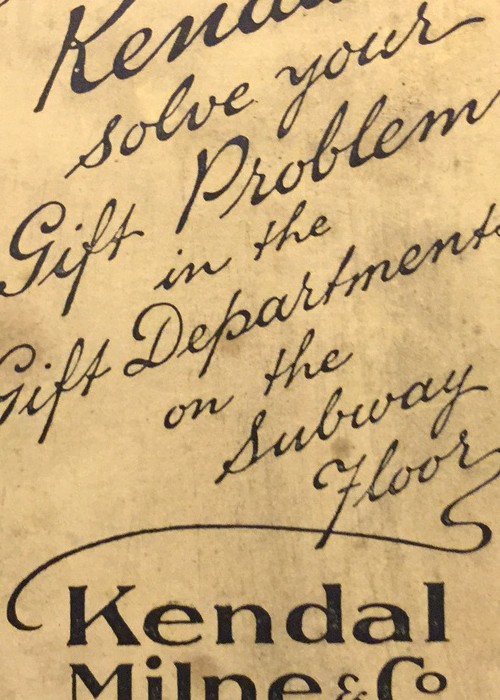 Kendal
solve your
Gift Problem
in the
Gift Departments
on the
Subway
Floor
Kendal
Milne & Co